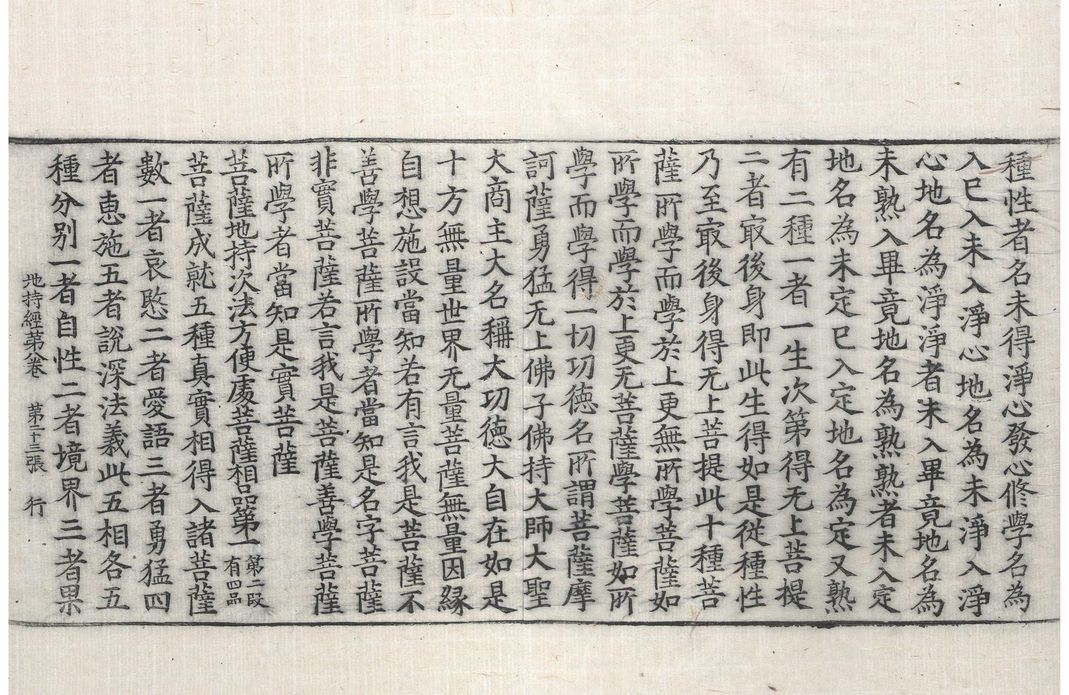 種性者名未得淨心發心修學名為
入已入未入淨心地名為未淨入淨
心地名為淨淨者未入畢竟地名為
未熟入畢竟地名為熟熟者未入定
地名為未定已入定地名為定又熟
有二種一者一生次第得无上菩提
二者㝡後身即此生得如是從種性
乃至㝡後身得无上菩提此十種菩
薩所學而學於上更無所學菩薩如
所學而學於上更无菩薩學菩薩如所
學而學得一切功德名所謂菩薩摩
訶薩勇猛无上佛子佛持大師大聖
大商主大名稱大功德大自在如是
十方無量世界无量菩薩無量因縁
自想施設當知若有言我是菩薩不
善學菩薩所學者當知是名字菩薩
非實菩薩若言我是菩薩善學菩薩
所學者當知是實菩薩
菩薩地持次法方便處菩薩相品第一第二段有四品
菩薩成就五種真實相得入諸菩薩
數一者哀愍二者愛語三者勇猛四
者惠施五者說深法義此五相各五
種分别一者自性二者境界三者果
地持經第八卷 第二十三張 行